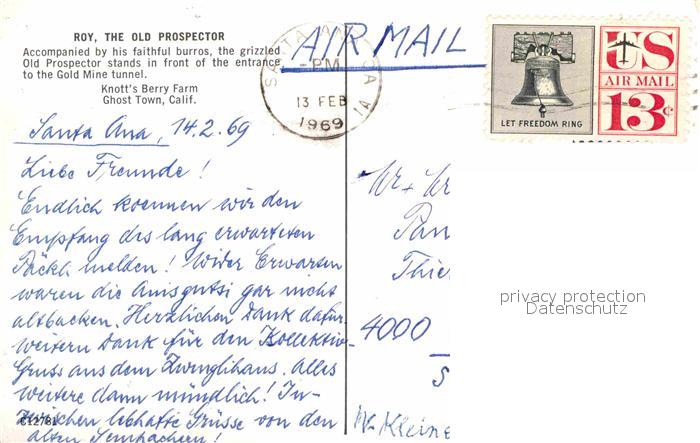 ROY, THE OLD PROSPECTOR
Accompanied by his faithful burros, the grizzled
Old Prospector stands in front of the entrance
to the Gold Mine tunnel.
Knott's Berry Farm
Ghost Town, Calif.
AIR MAIL
SANTA ANA CA
PM
13 FEB
1969
LET FREEDOM RING
US
AIR MAIL
13c
Santa Ana, 14.2.69
Liebe Freunde!
Endlich koennen wir den
Empfang des lang erwarteten
Päckli melden! Wider Erwarten
waren die Anisgutsi gar nicht
altbacken. Herzlichen Dank dafür.
weitern Dank für den Kollektiv-
Gruss aus dem Zwinglihaus. Alles
weitere dann mündlich! In-
zwischen lebhafte Grüsse von den
alten
C12781
Pan
Thie
4000
S
Kleine
privacy protection
Datenschutz